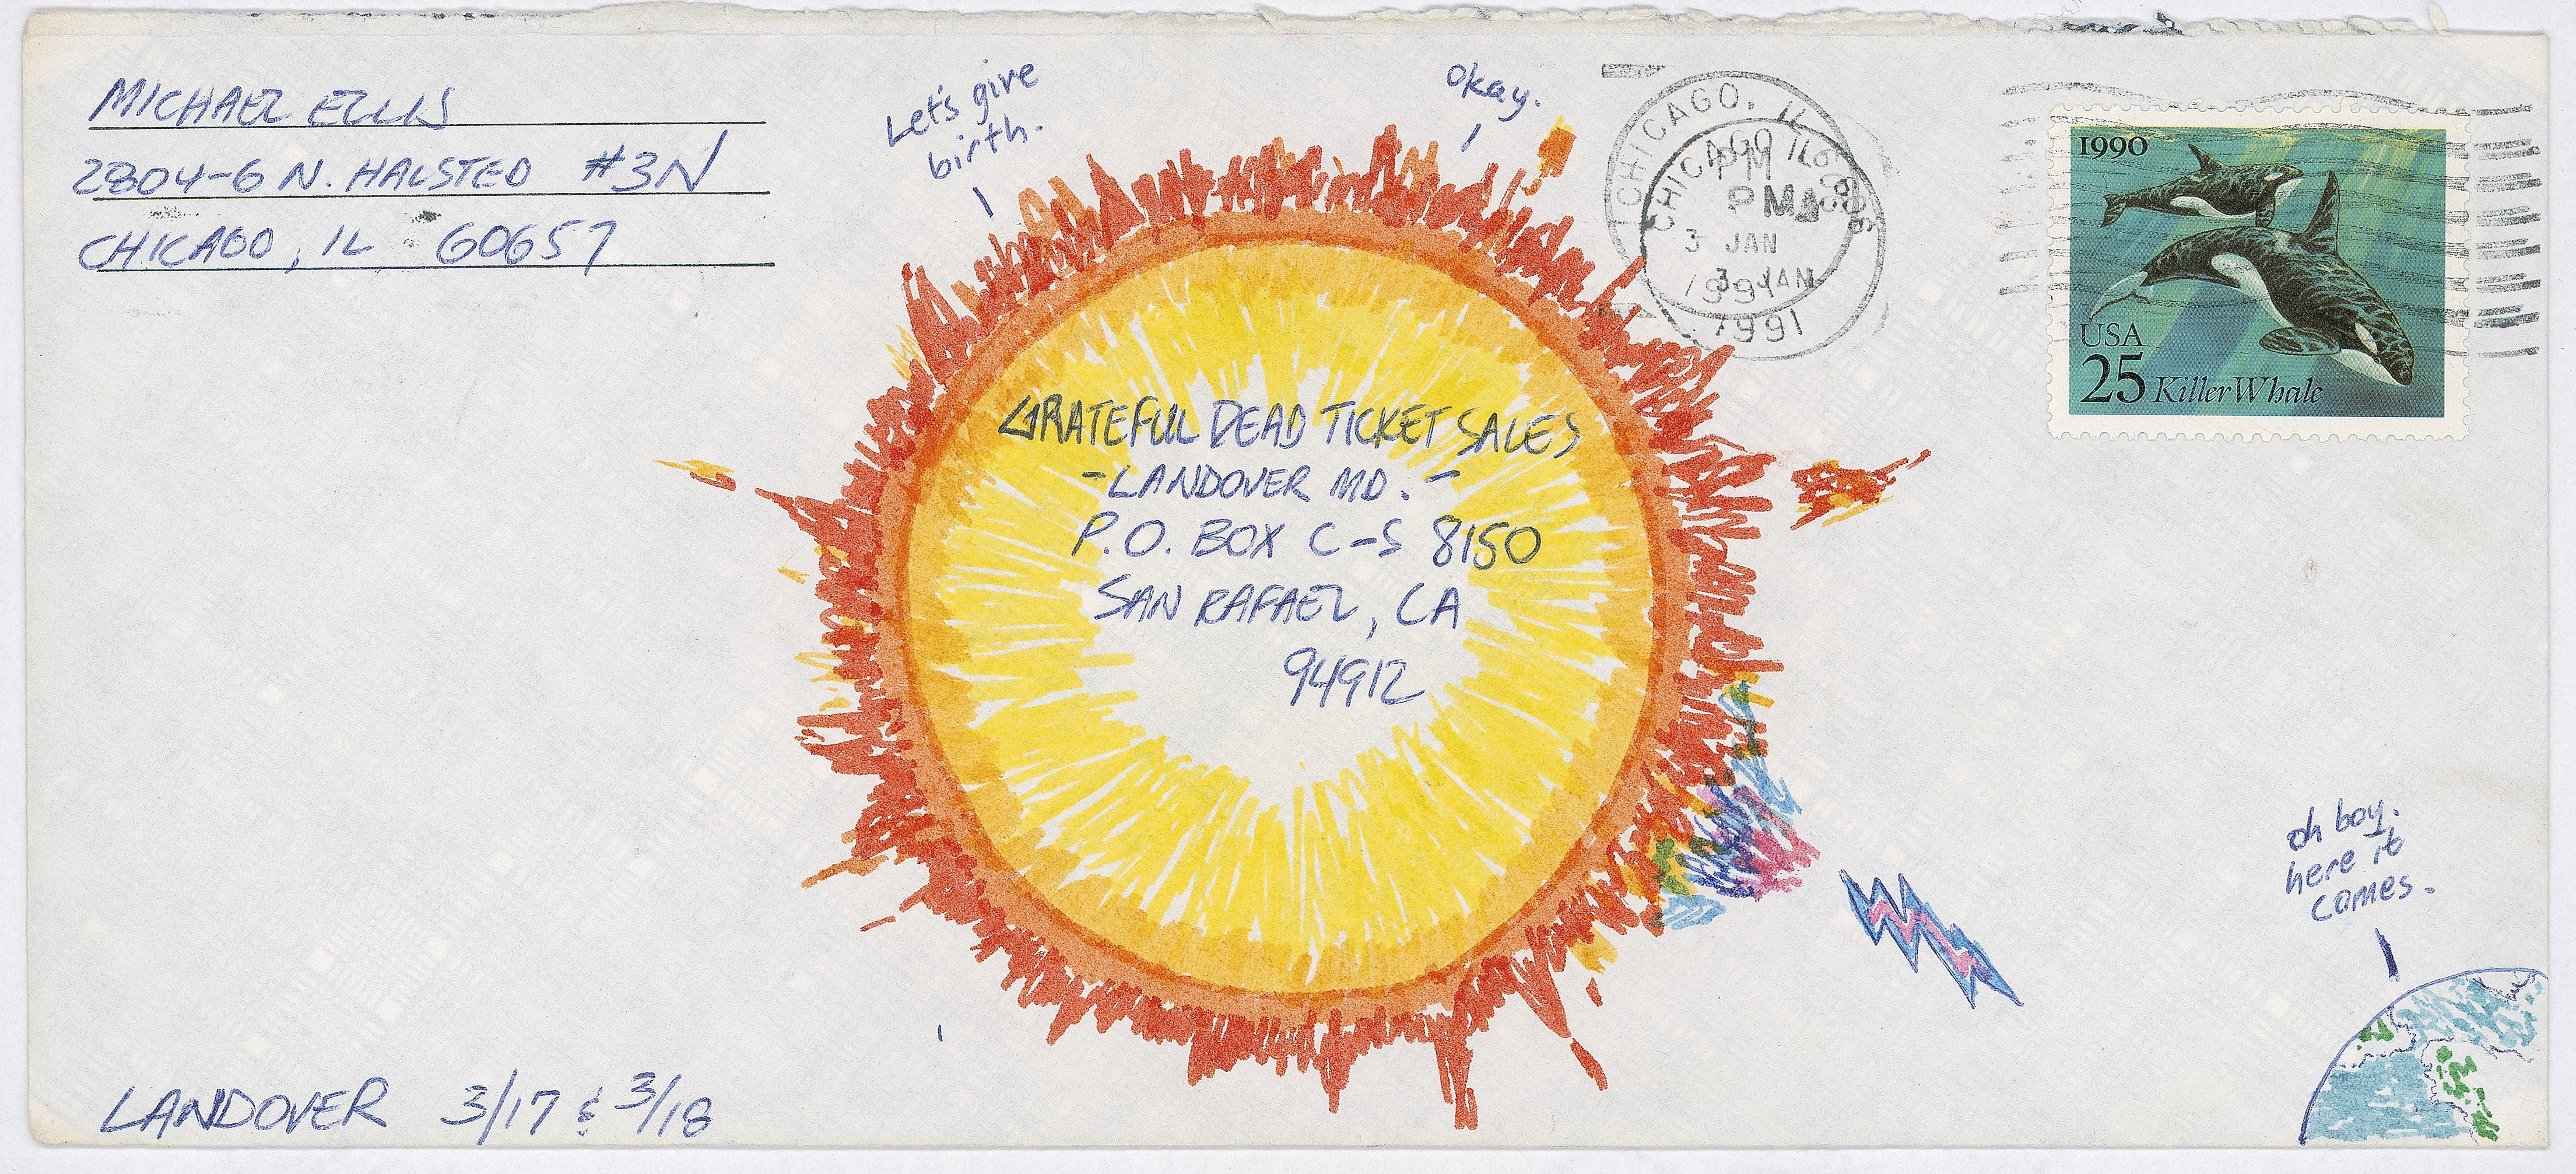 MICHAEL ELLIS
2804-6 N. HALSTED #3N
CHICAGO, IL 60657
Let's give
birth.
okay.
CHICAGO, IL 606
CHICAGO IL 606
PM
PM
3 JAN
1991
3 JAN
1991
1990
USA
25 Killer Whale
GRATEFUL DEAD TICKET SALES
-LANDOVER MD.-
P.O. BOX C-S 8150
SAN RAFAEL, CA
94912
oh boy.
here it
comes.
LANDOVER 3/17 & 3/18